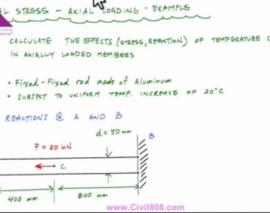 AL STRESS - AXIAL LOADING - EXAMPLE
CALCULATE THE EFFECTS (STRESS, REACTION) OF TEMPERATURE C
IN AXIALLY LOADED MEMBERS
• Fixed-Fixed rod made of Aluminum
• SUBJECT TO UNIFORM TEMP. INCREASE OF 20°C
REACTIONS @ A AND B
d = 50 mm
B
P = 20 kN
C
400 mm
800 mm
www.Civil808.com